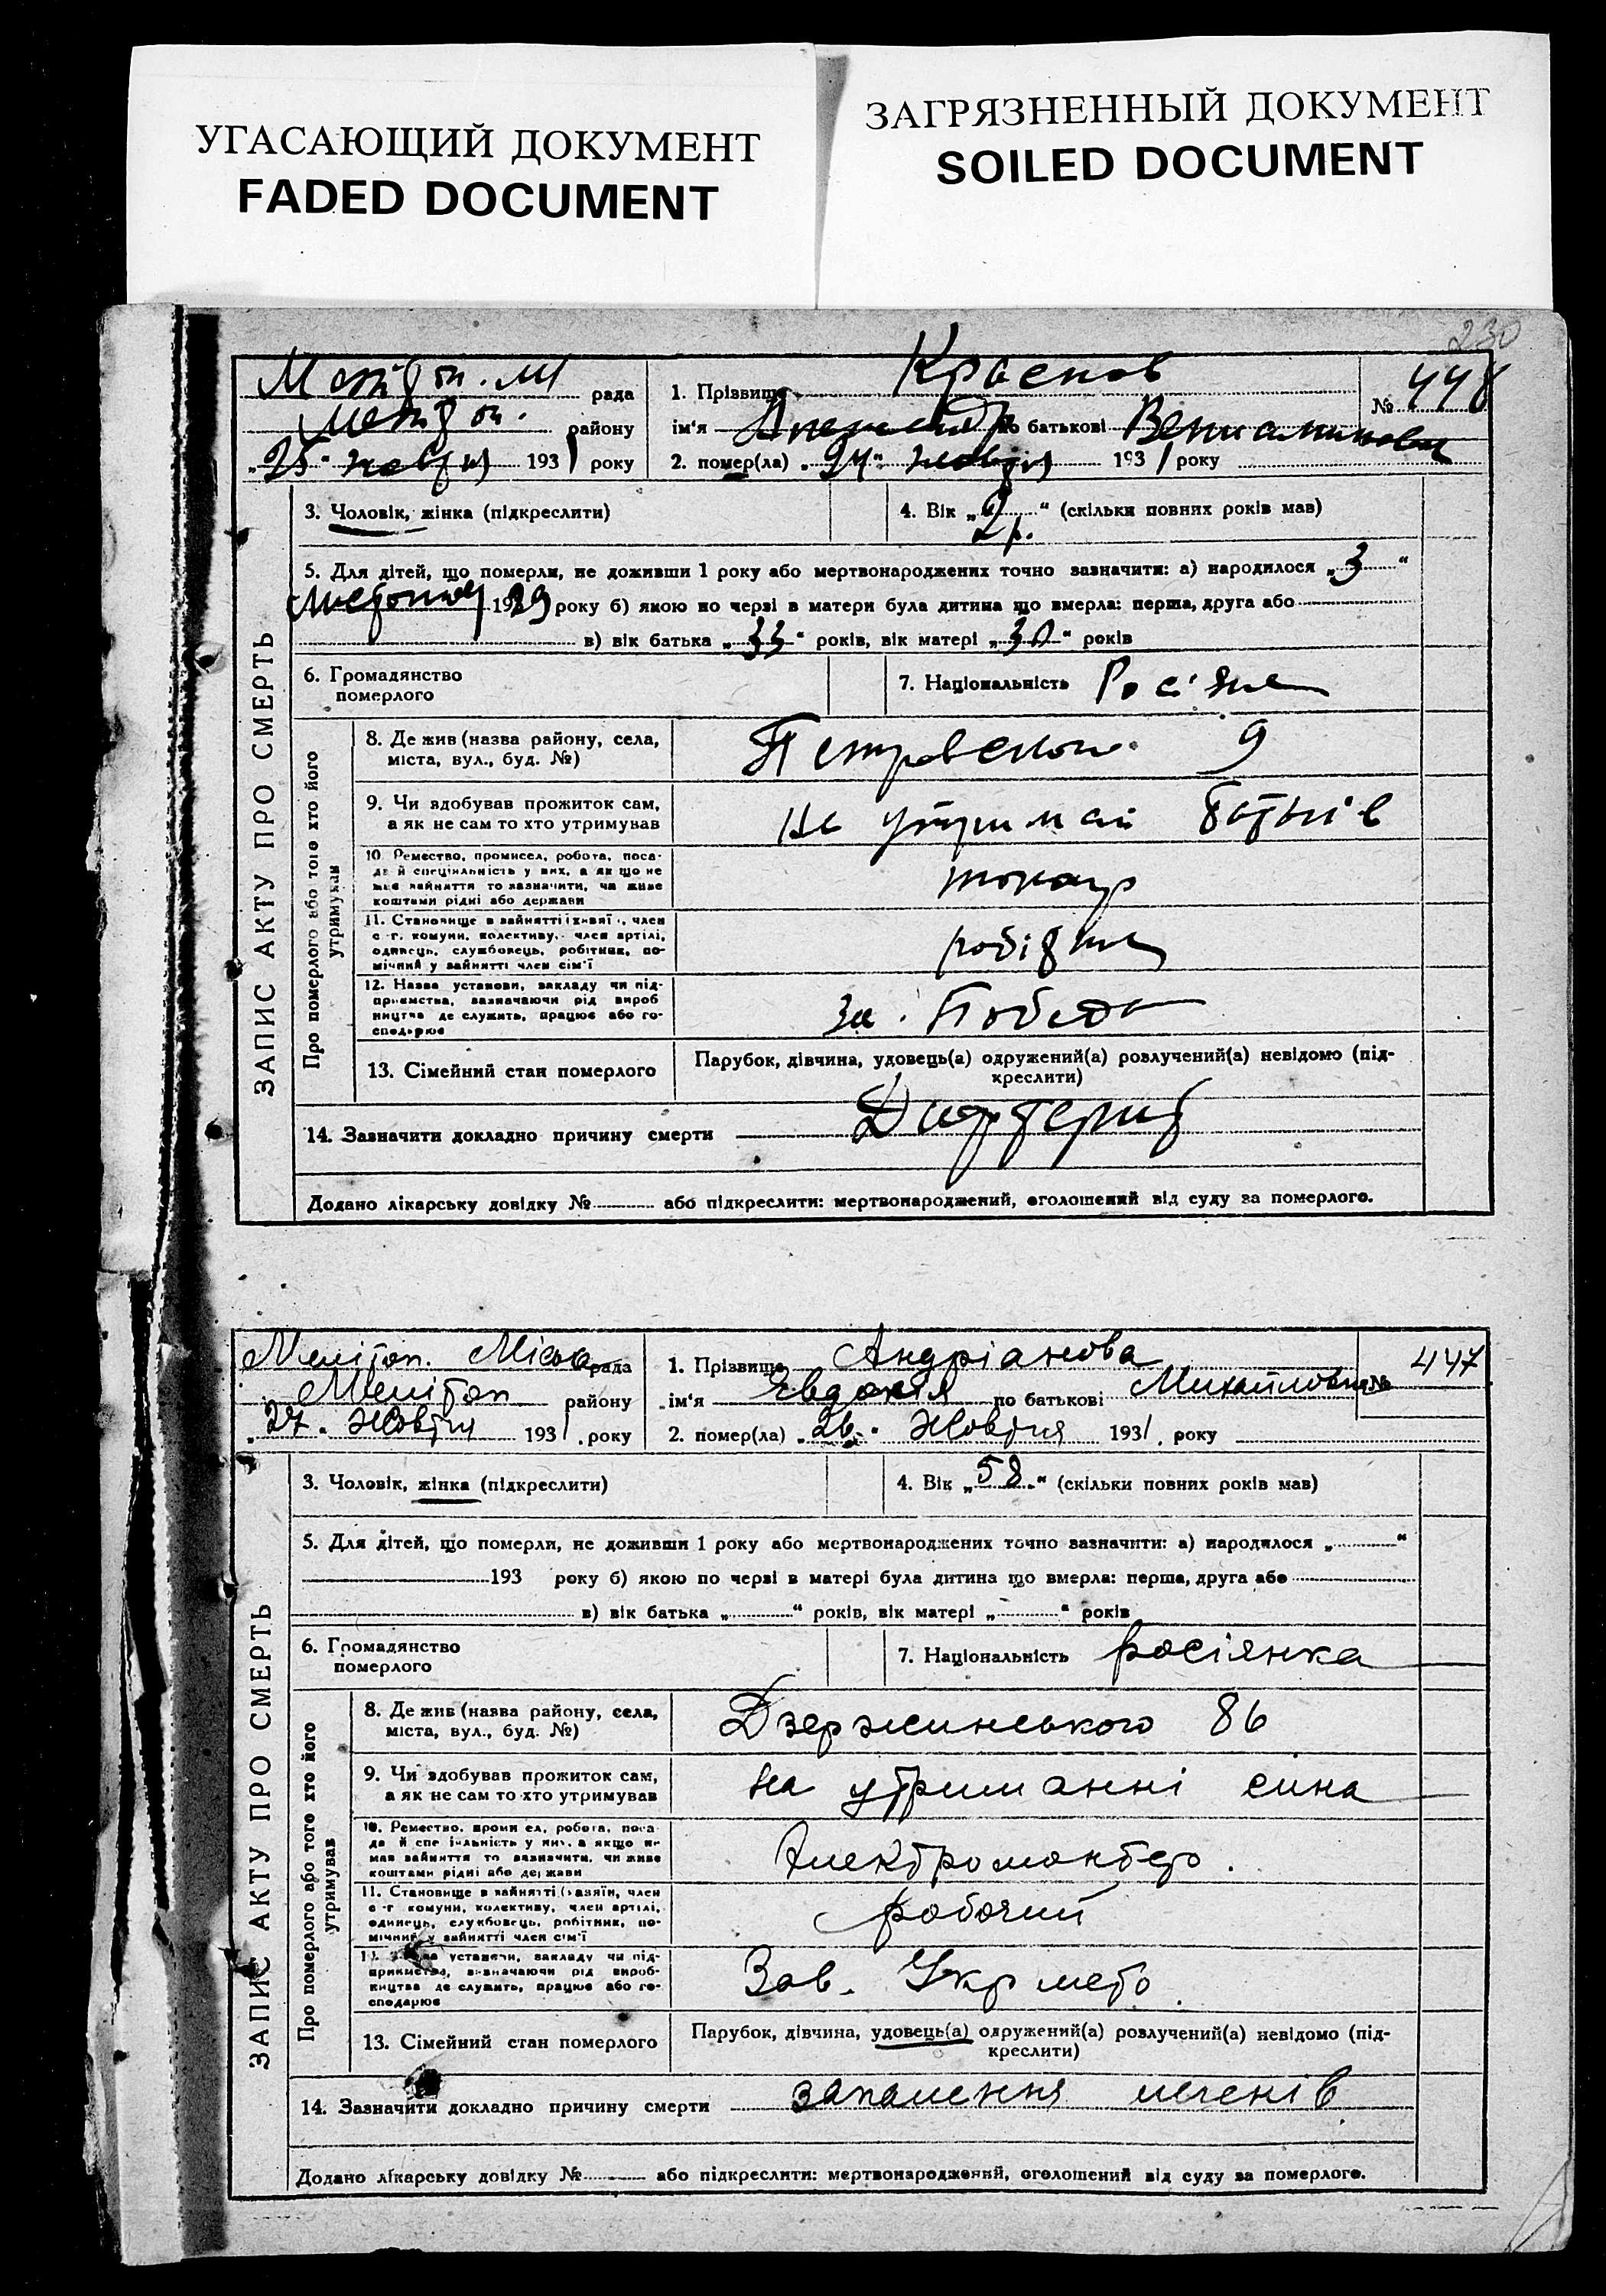 УГАСАЮЩИЙ ДОКУМЕНТ
FADED DOCUMENT
ЗАГРЯЗНЕННЫЙ ДОКУМЕНТ
SOILED DOCUMENT
230
рада
району
"25" 193 1 року
1. Прізвище Краснов
№ 448
ім'я по батькові
2. помер(ла) "24" 193 1 року
ЗАПИС АКТУ ПРО СМЕРТЬ
3. Чоловік, жінка (підкреслити)
4. Вік " 2 р. " (скільки повних років мав)
5. Для дітей, що померли, не доживши 1 року або мертвонароджених точно зазначити: а) народилося "3"
1929 року б) якою по черзі в матери була дитина що вмерла: перша, друга або
в) вік батька "33" років, вік матері "30" років
6. Громадянство
померлого
7. Національність
Про померлого або того хто його
утримував
8. Де жив (назва району, села,
міста, вул., буд. №)
9
9. Чи здобував прожиток сам,
а як не сам то хто утримував
10. Ремество, промисел, робота, поса-
да й спеціяльність у них, а як що не
мав зайняття то зазначити, чи живе
коштами рідні або держави
токар
11. Становище в зайнятті (хазяїн, член
с.-г. комуни, колективу, член артілі,
одинець, службовець, робітник, по-
мічний у зайнятті член сім'ї
12. Назва установи, закладу чи під-
приємства, зазначаючи рід вироб-
ництва де служить, працює або го-
сподарює
13. Сімейний стан померлого
Парубок, дівчина, удовець(а) одружений(а) розлучений(а) невідомо (під-
креслити)
14. Зазначити докладно причину смерти
Додано лікарську довідку № або підкреслити: мертвонароджений, оголошений від суду за померлого.
рада
Мелітоп району
"27" Жовтня 193 1 року
1. Прізвище Андріанова
447
ім'я Євдокія по батькові Михайловна №
2. помер(ла) "26" Жовтня 193 1 року
ЗАПИС АКТУ ПРО СМЕРТЬ
3. Чоловік, жінка (підкреслити)
4. Вік "58" (скільки повних років мав)
5. Для дітей, що померли, не доживши 1 року або мертвонароджених точно зазначити: а) народилося " "
193 року б) якою по черзі в матері була дитина що вмерла: перша, друга або
в) вік батька " " років, вік матері " " років
6. Громадянство
померлого
7. Національність росіянка
Про померлого або того хто його
утримував
8. Де жив (назва району, села,
міста, вул., буд. №)
Дзержинського 86
9. Чи здобував прожиток сам,
а як не сам то хто утримував
на утриманні сина
10. Ремество, промисел, робота, поса-
да й спеціяльність у них, а якщо не
мав зайняття то зазначити, чи живе
коштами рідні або держави
Электромонтер.
11. Становище в зайнятті (хазяїн, член
с.-г комуни, колективу, член артілі,
одинець, службовець, робітник, по-
мічний у зайнятті член сім'ї
робочий
установи, закладу чи під-
приємства, зазначаючи рід вироб-
ництва де служить, працює або го-
сподарює
Зав.
13. Сімейний стан померлого
Парубок, дівчина, удовець(а) одружений(а) розлучений(а) невідомо (під-
креслити)
14. Зазначити докладно причину смерти запалення легенів
Додано лікарську довідку № або підкреслити: мертвонароджений, оголошений від суду за померлого.